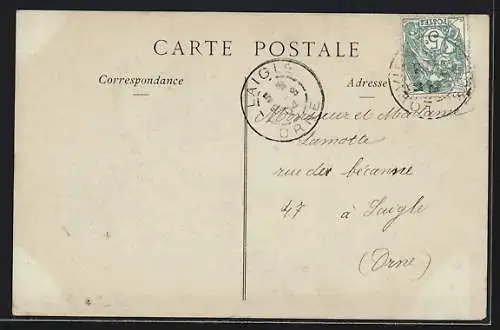 CARTE POSTALE
Correspondance
Adresse
LAIGLE
ORNE
POSTES
5
Monsieur et Madame
Lamotte
rue des bécanne
47 à Laigle
(Orne)